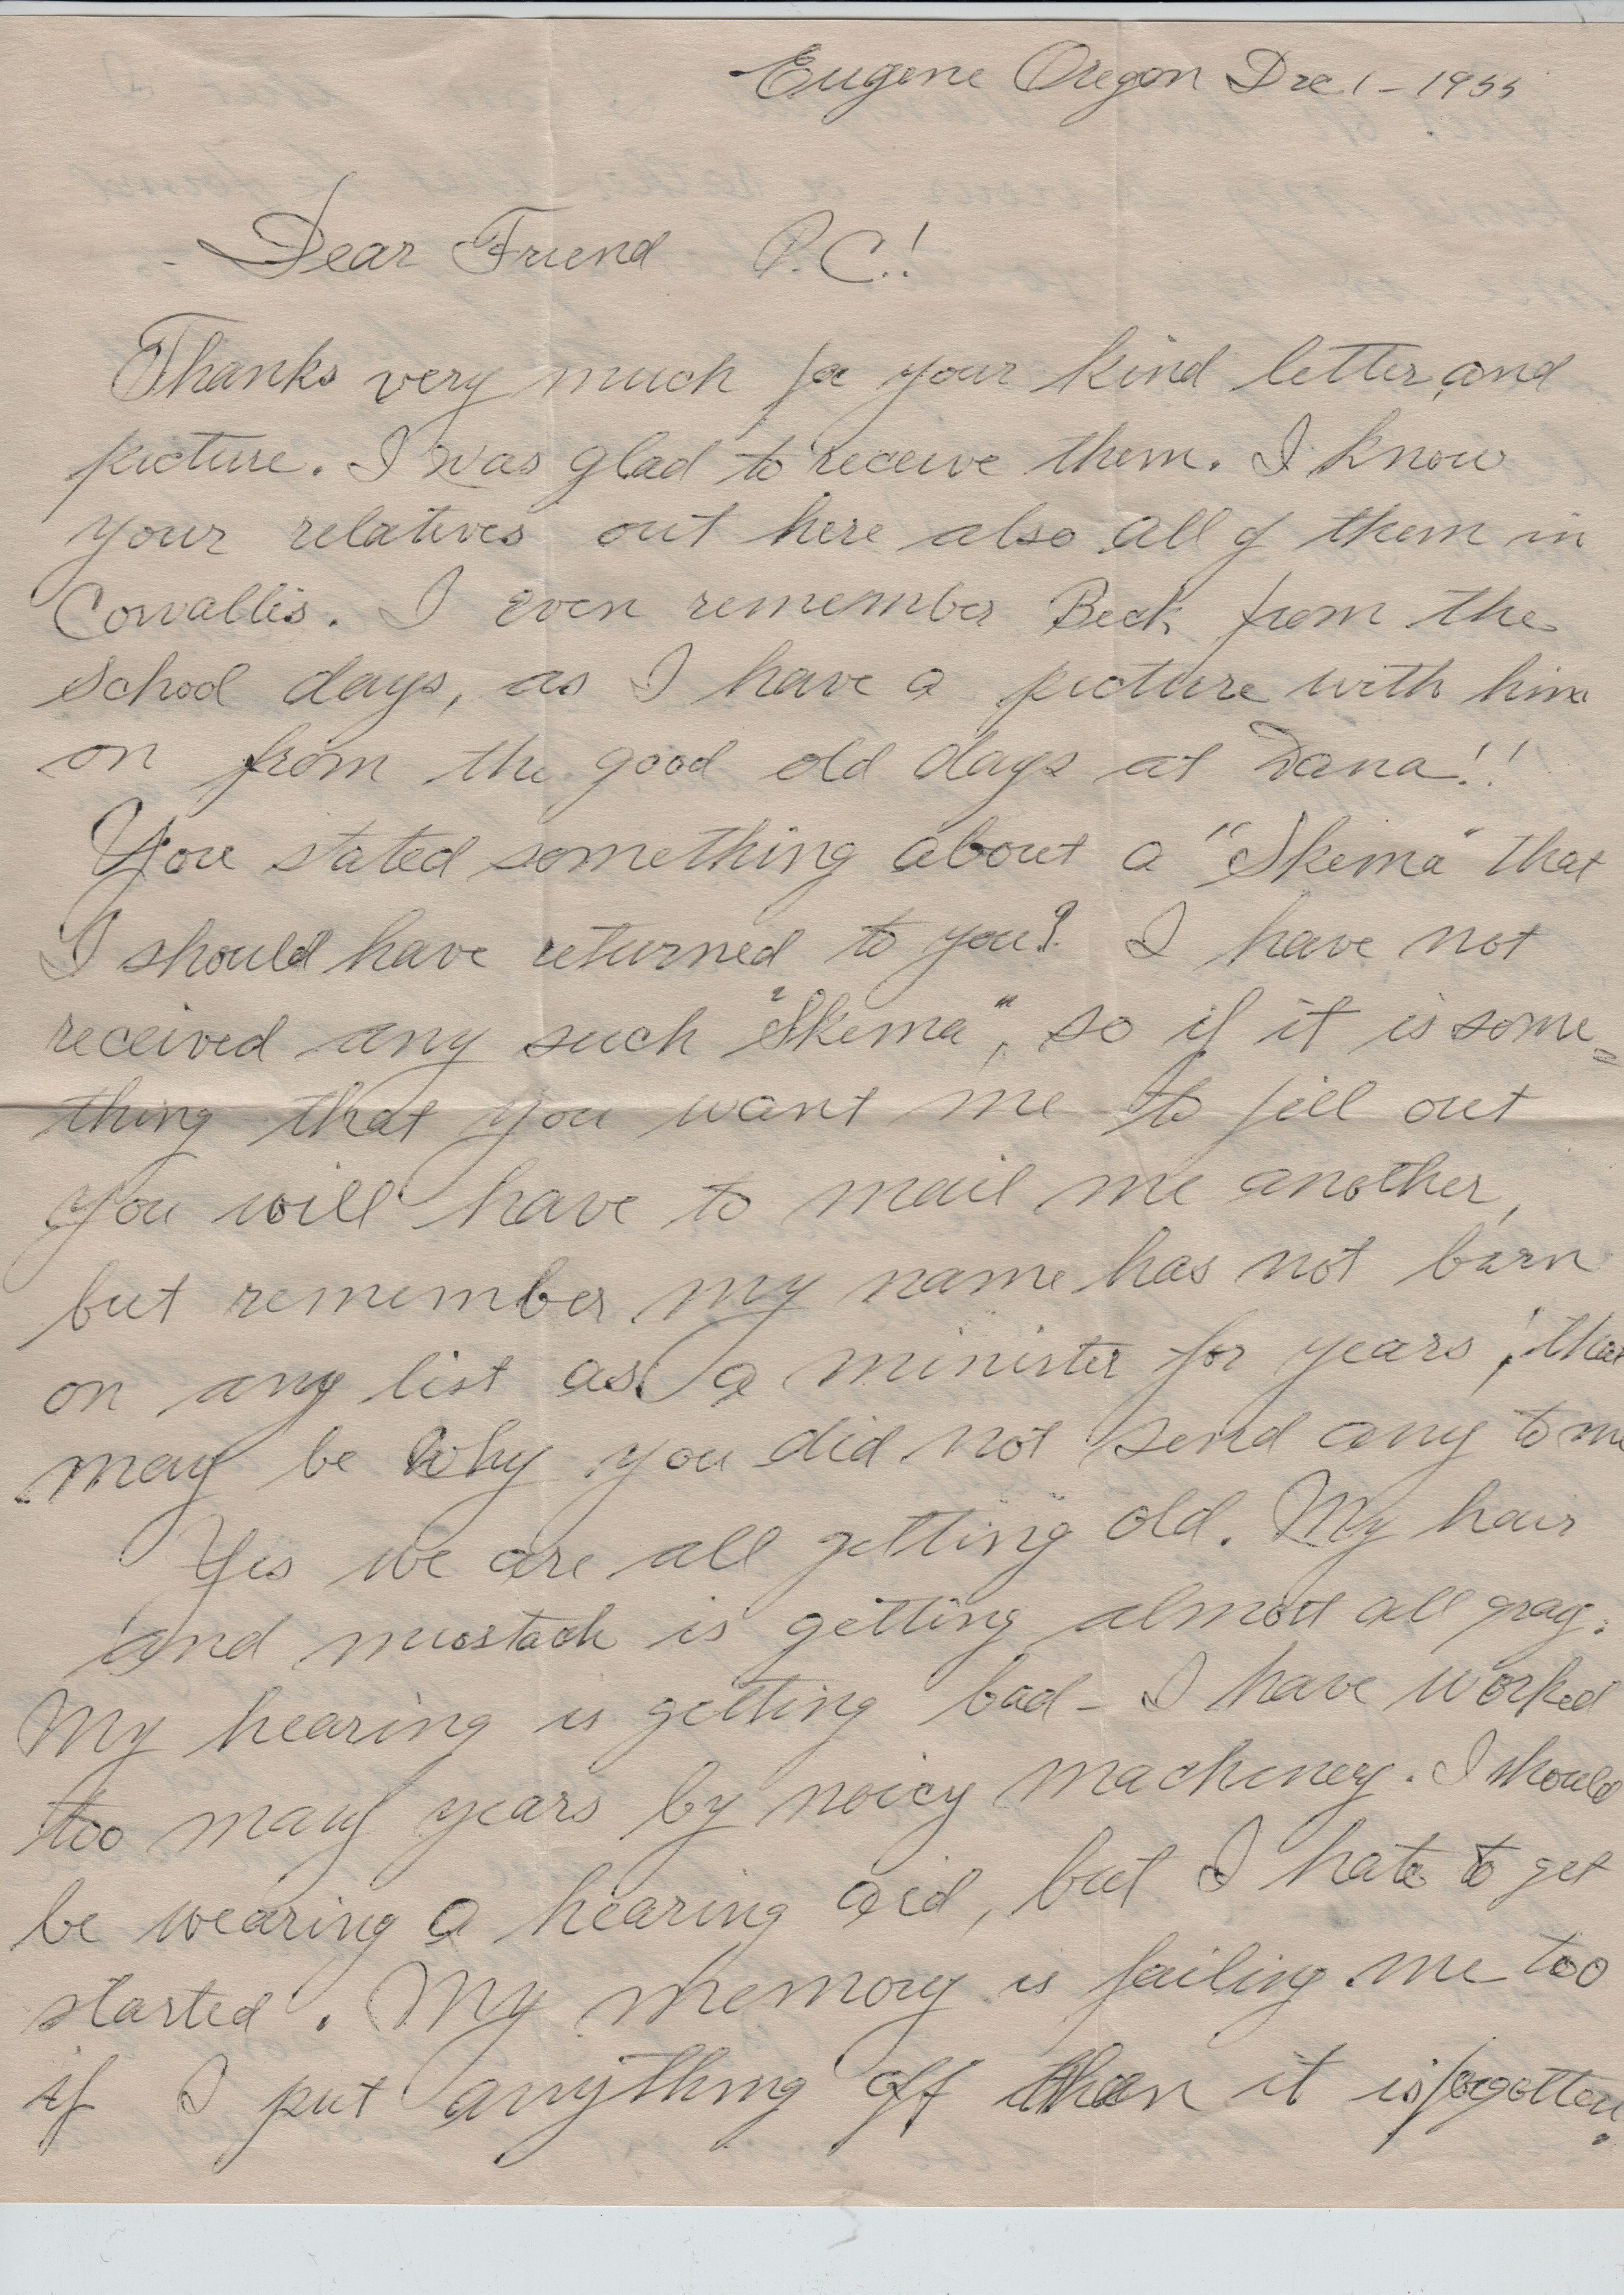 Eugene Oregon Dec 1 - 1955
Dear Friend P.C.!
Thanks very much for your kind letter, and
picture. I was glad to receive them. I know
your relatives out here also all of them in
Corvallis. I even remember Beck from the
school days, as I have a picture with him
on from the good old days at Dana!!
You stated something about a "Skema" that
I should have returned to you? I have not
received any such "Skema", so if it is some=
thing that you want me to fill out
you will have to mail me another,
but remember my name has not barn
on any list as a minister for years, that
may be why you did not send any to me
Yes we are all getting old. My hair
and mustach is getting almost all gray.
My hearing is getting bad - I have worked
too many years by noicy machinery. I should
be wearing a hearing aid, but I hate to get
started. My memory is failing me too
if I put anything off then it is forgotten.